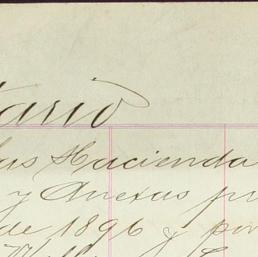 tario
las Hacienda
y Anexas pr
de 1896 y por